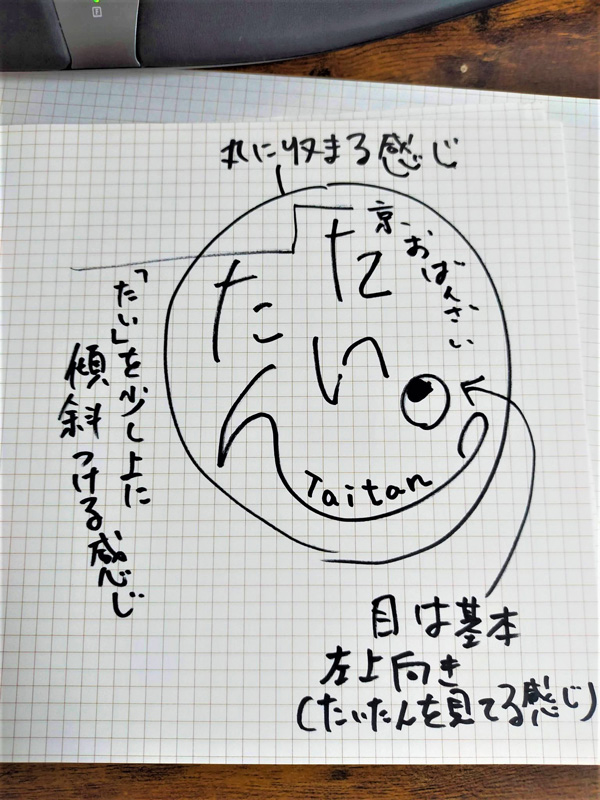 丸に収まる感じ
京・おばんざい
たい
たん
Taitan
「たい」を少し上に
傾斜つける感じ
目は基本
左上向き
(たいたんを見てる感じ)